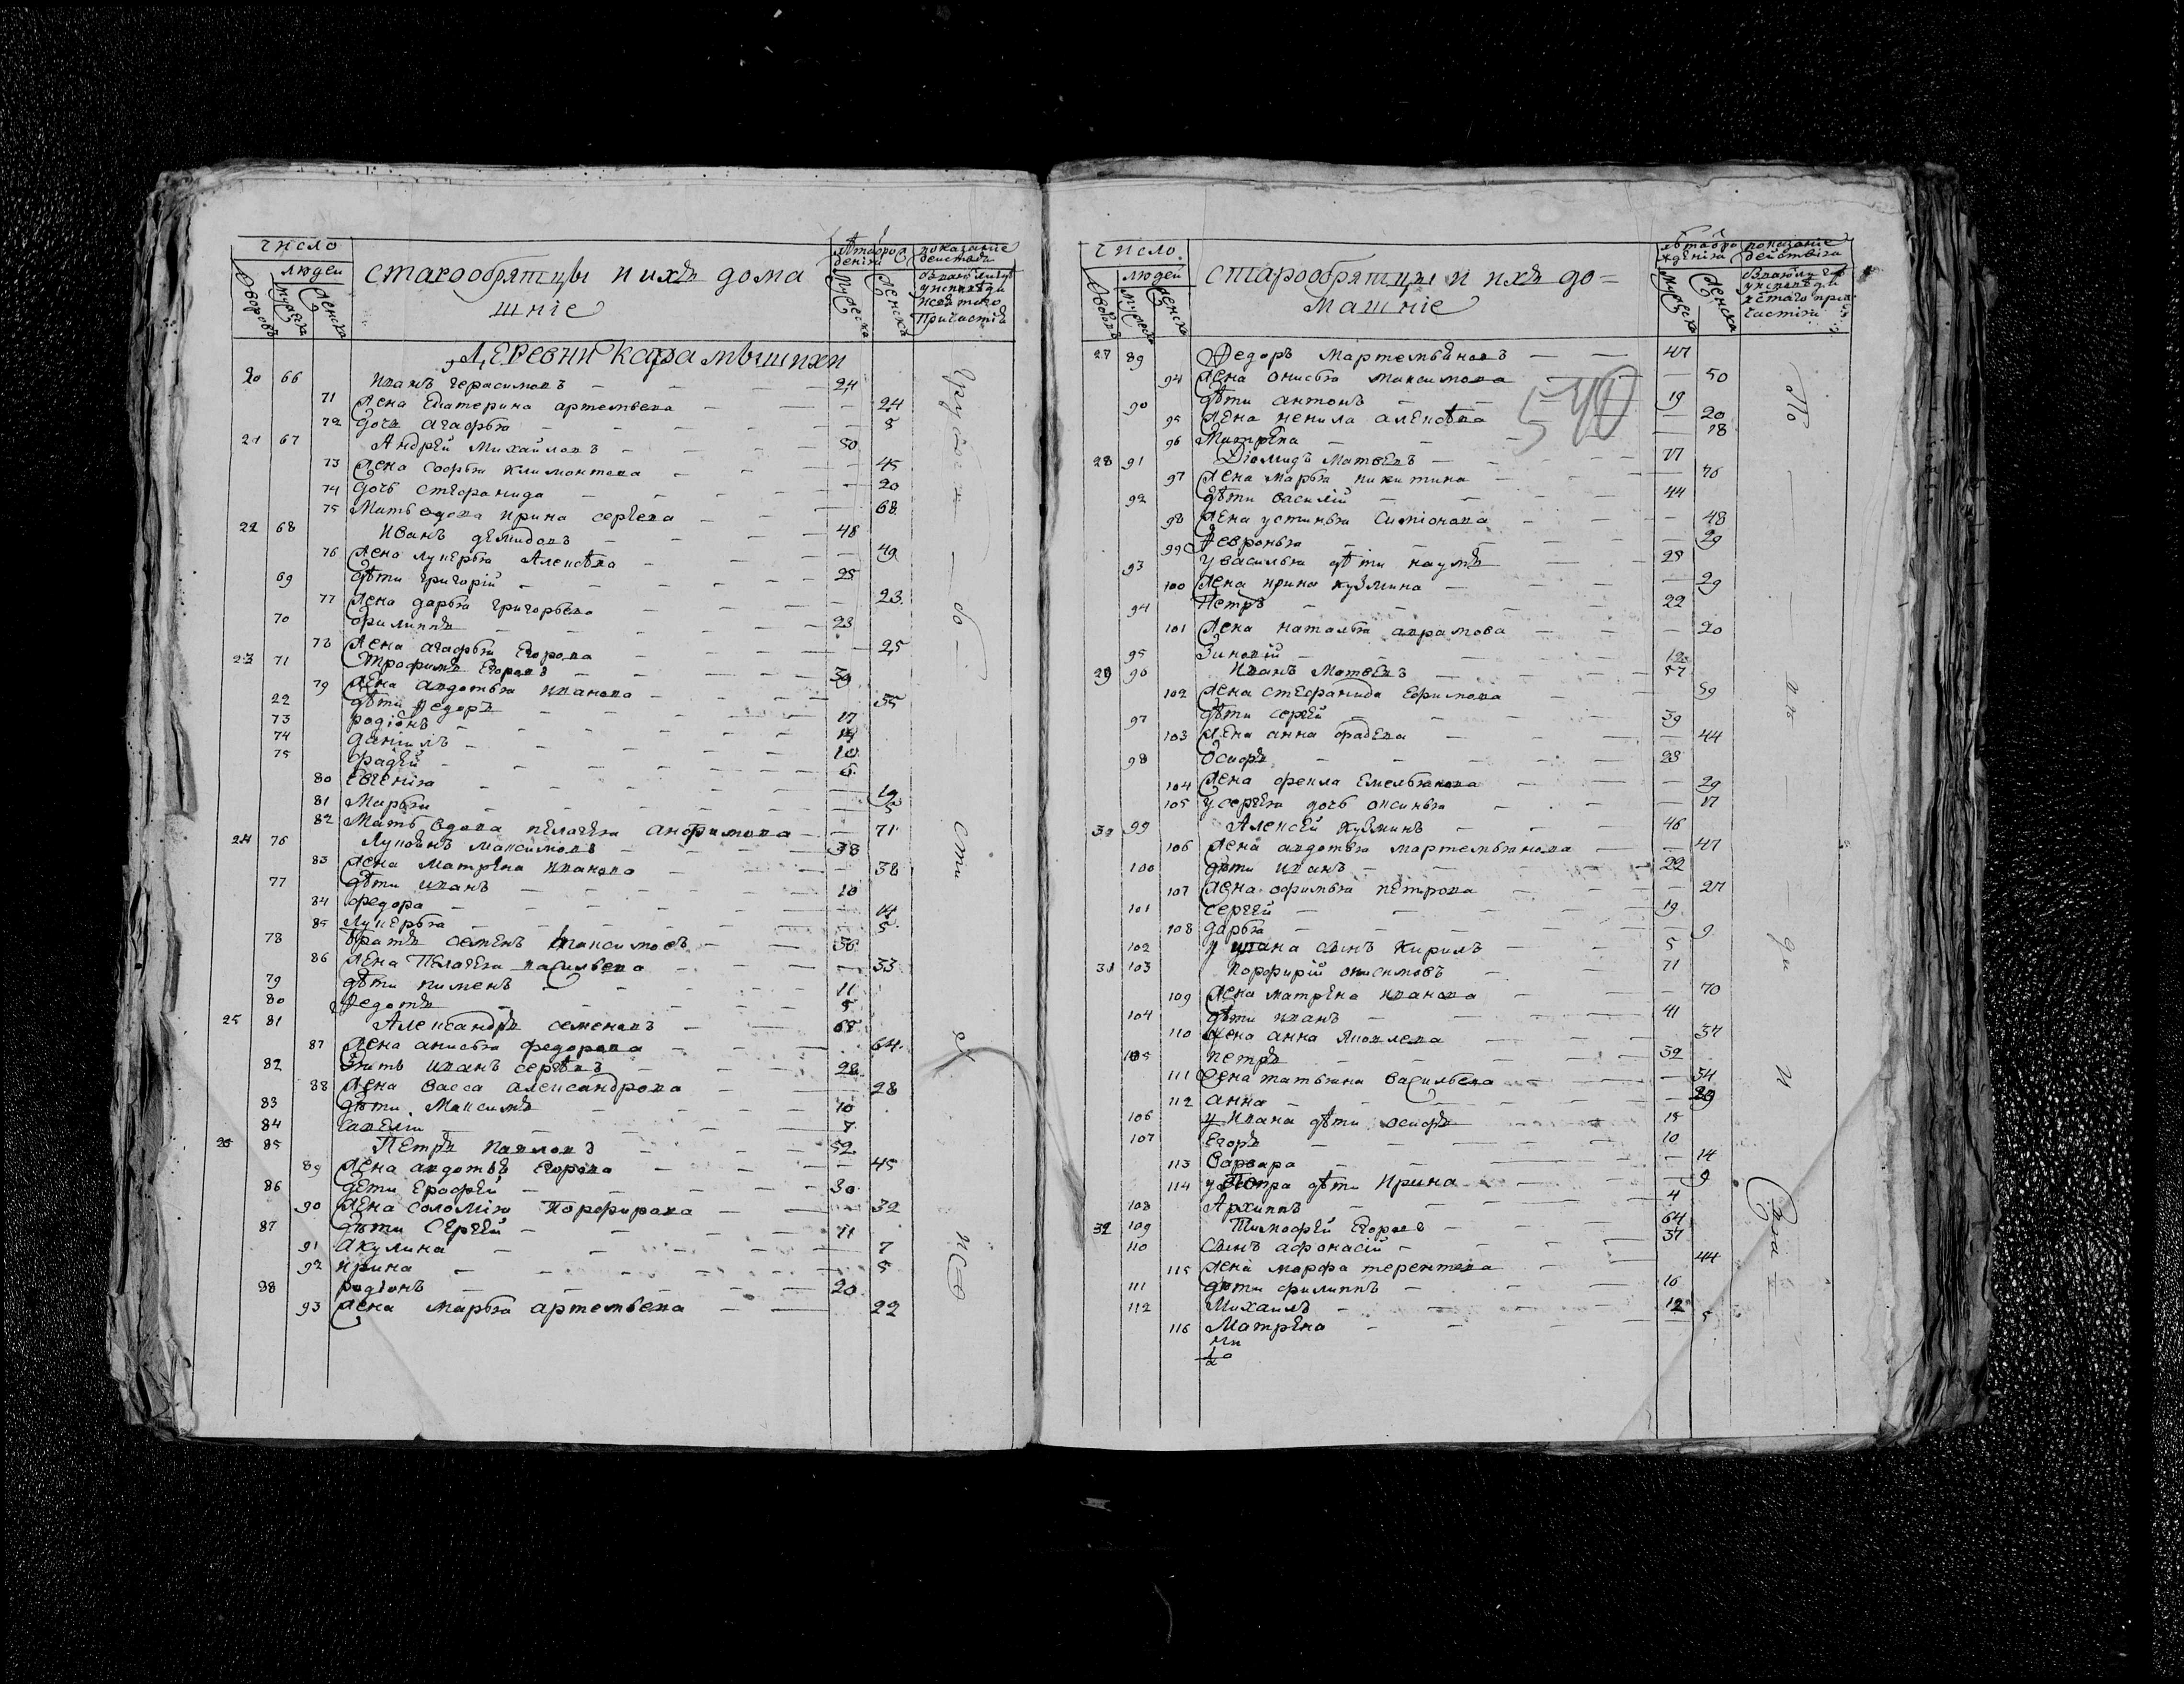 число
людей
дворовъ
мужеска
женска
старообрятцы и ихъ дома
шніе
лѣта рож
деніи
мужеска
женскъ
показаніе
деистви
Деревни Карамышихи
20 66 Иванъ герасимовъ — 24
71 Жена Екатерина артемьева — 24
72 дочь агафья — 5
21 67 Андрей Михайловъ — 50
73 Жена софья климонтева — 45
74 дочь стефанида — 20
75 Мать вдова ирина сергеева — 68
22 68 Иванъ демидовъ — 48
76 Жена лукерья Алексѣва — 49
69 дѣти григорій — 25
77 Жена дарья григорьева — 23
70 филиппъ — 23
78 Жена агафья Егорова — 25
23 71 Трофимъ Егоровъ — 39
79 Жена авдотья иванова — 35
22 дѣти Федоръ — 17
73 родіонъ — 14
74 данилъ — 10
75 фадей — 6
80 Евгенія — 19
81 Марья — 5
82 Мать вдова пелагея анфимова — 71
24 76 Лукоянъ Максимовъ — 38
83 Жена Матрена иванова — 38
77 дѣти иванъ — 10
84 федора — 14
85 Лукерья — 5
78 братъ семенъ Максимовъ — 36
86 Жена Пелагея васильева — 33
79 дѣти пименъ — 11
80 Федотъ — 5
25 81 Александръ семеновъ — 65
87 Жена анисья федорова — 64
82 Зять иванъ сергѣвъ — 28
88 Жена васса александрова — 28
83 дѣти Максимъ — 10
84 савели — 7
26 85 Петръ павловъ — 52
89 Жена авдотья Егорова — 45
86 дети Ерофей — 30
90 Жена соломія Порфирова — 32
87 дѣти Сергей — 11
91 Акулина — 7
92 ирина — 5
88 родіонъ — 20
93 Жена марья артемьева — 22
число
людей
дворовъ
мужеска
женска
старообрятцы и ихъ до=
машніе
лѣта ро
жденія
мужеска
женска
показаніе
действія
27 89 Федоръ Мартемьяновъ — 47
94 Жена онисья максимова — 50
90 дѣти антонъ — 19
95 Жена ненила алексѣва — 20
96 Матрена — 18
540
28 91 Діомидъ Матвеевъ — 77
97 Жена марья никитина — 76
92 дѣти василій — 44
98 Жена устинья Симіонова — 48
99 Февронья — 29
93 у василья дѣти наумъ — 28
100 Жена ирина кузмина — 29
94 Петръ — 22
101 Жена наталья аврамова — 20
95 Зиновій — 12
29 96 Иванъ Матвеевъ — 57
102 Жена стефанида Ефимова — 59
97 дѣти сергей — 39
103 Жена анна фадеева — 44
98 Осифъ — 28
104 Жена фекла Емельянова — 29
105 у сергея дочь аксинья — 17
30 99 Алексей Кузминъ — 46
106 Жена авдотья мартемьянова — 47
100 дѣти иванъ — 22
107 Жена офимья петрова — 27
101 сергей — 19
108 дарья — 9
102 у ивана сынъ Кирилъ — 5
31 103 Порфирій онисимовъ — 71
109 Жена матрена иванова — 70
104 дѣти иванъ — 41
110 Жена анна яковлева — 37
105 петръ — 32
111 Жена татьяна васильева — 34
112 анна — 29
106 у ивана дѣти осифъ — 15
107 Егоръ — 10
113 варвара — 14
114 у Петра дѣти Ирина — 9
108 Архиппъ — 4
32 109 Тимофей Егоровъ — 64
110 сынъ афонасій — 37
115 Жена марфа терентева — 44
111 дѣти филиппъ — 16
112 Михаилъ — 12
116 Матрена — 5